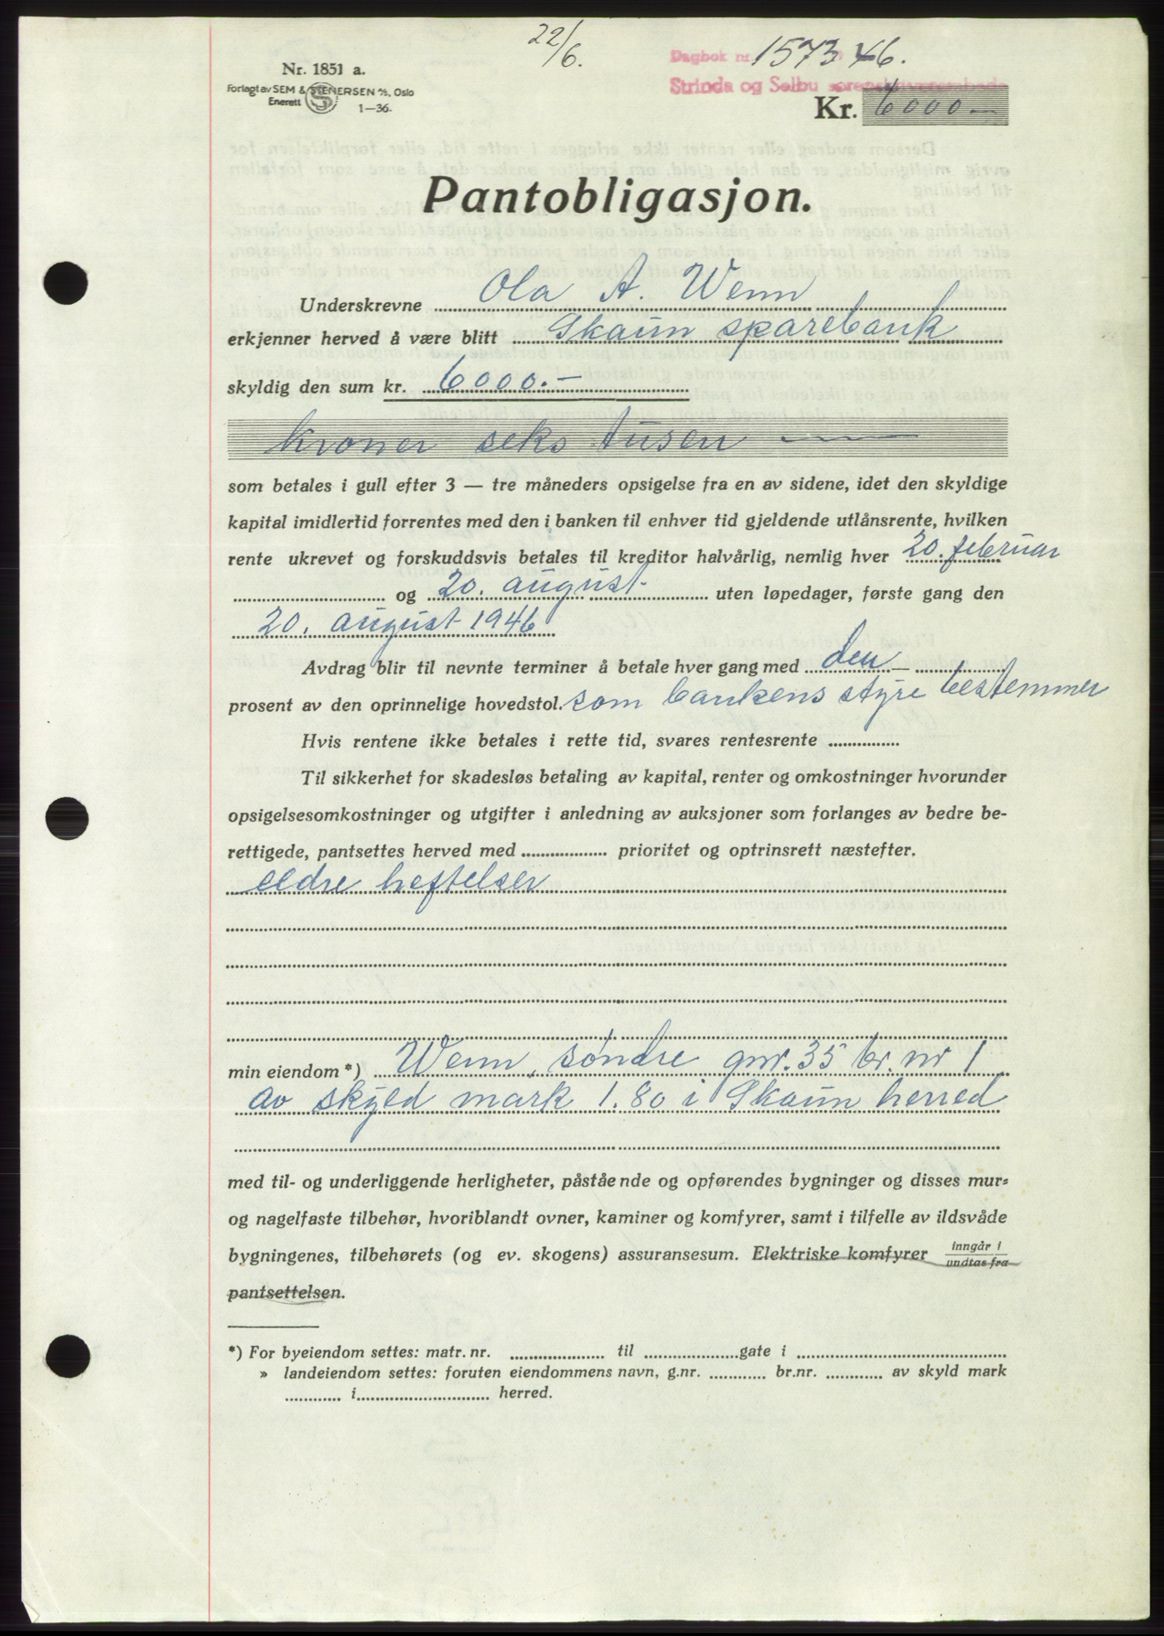 22/6.
Dagbok nr. 1573 46.
Strinda og Selbu sorenskriverembede
Nr. 1851 a.
Forlagt av SEM & STENERSEN A/S, Oslo
Enerett
1—36.
Kr. 6000 —
Pantobligasjon.
Underskrevne Ola A. Wenn
erkjenner herved å være blitt Skaun sparebank
skyldig den sum kr. 6000.-
kroner seks tusen
som betales i gull efter 3 — tre måneders opsigelse fra en av sidene, idet den skyldige
kapital imidlertid forrentes med den i banken til enhver tid gjeldende utlånsrente, hvilken
rente ukrevet og forskuddsvis betales til kreditor halvårlig, nemlig hver 20. februar
og 20. august uten løpedager, første gang den
20. august 1946
Avdrag blir til nevnte terminer å betale hver gang med den
prosent av den oprinnelige hovedstol. som bankens styre bestemmer
Hvis rentene ikke betales i rette tid, svares rentesrente
Til sikkerhet for skadesløs betaling av kapital, renter og omkostninger hvorunder
opsigelsesomkostninger og utgifter i anledning av auksjoner som forlanges av bedre be-
rettigede, pantsettes herved med prioritet og optrinsrett næstefter.
eldre heftelser
min eiendom *) Wenn, søndre gnr. 35 br. nr 1
av skyld mark 1.80 i Skaun herred
med til- og underliggende herligheter, påstående og opførendes bygninger og disses mur-
og nagelfaste tilbehør, hvoriblandt ovner, kaminer og komfyrer, samt i tilfelle av ildsvåde
bygningenes, tilbehørets (og ev. skogens) assuransesum. Elektriske komfyrer inngår i / undtas fra
pantsettelsen.
*) For byeiendom settes: matr. nr. til gate i
» landeiendom settes: foruten eiendommens navn, g.nr. br.nr. av skyld mark
i herred.